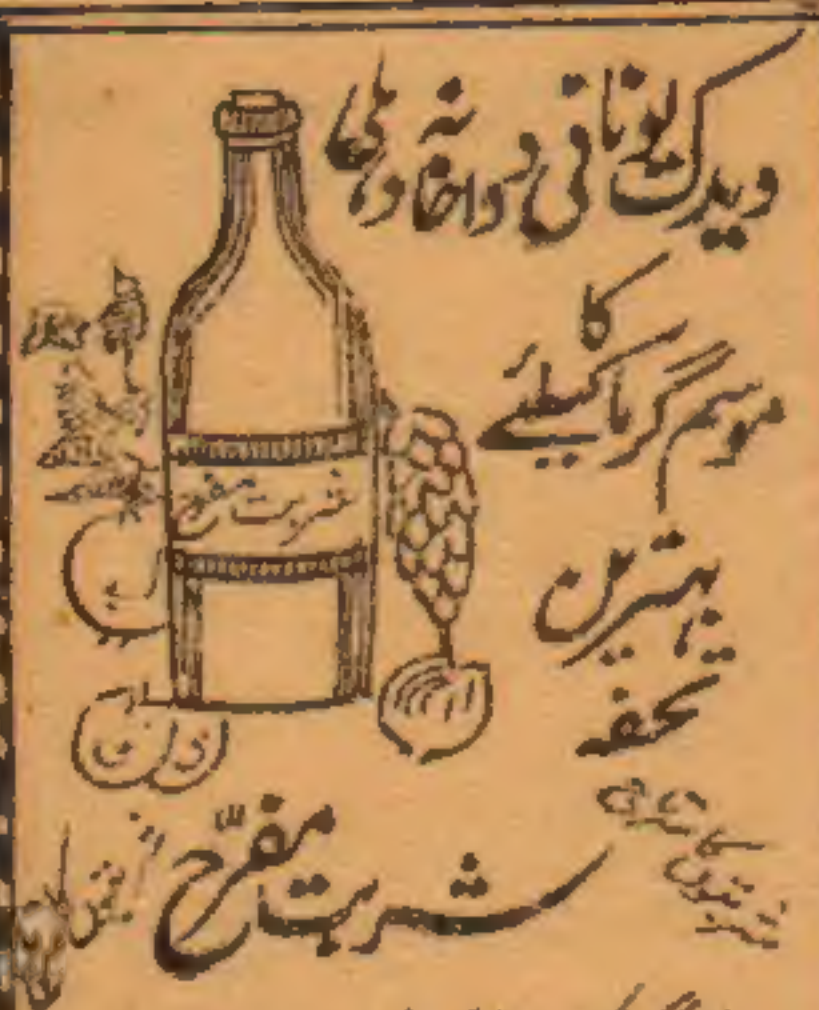 ویدک یونانی دواخانہ دہلی
کا
موسم گرما کیلئے
بہترین
تحفہ
شربت مفرح
شربت مفرح